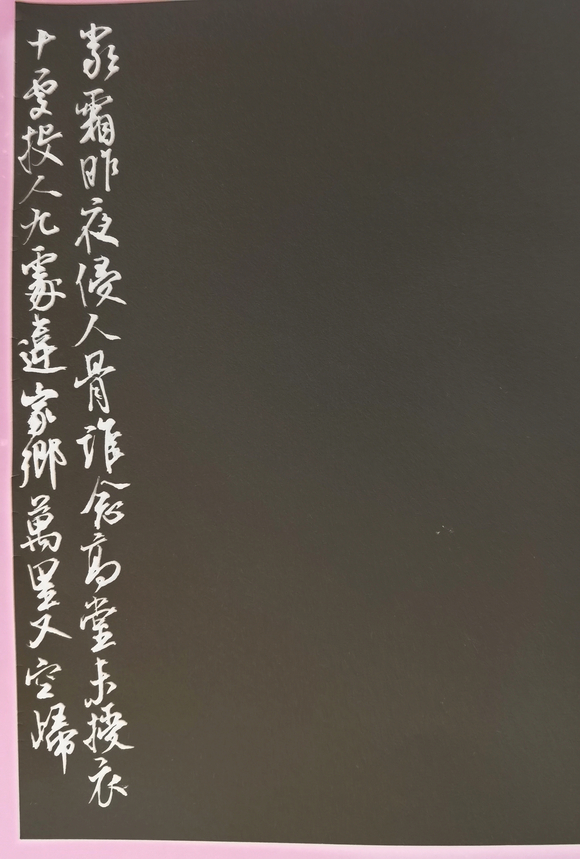 十處投人九處違家鄉萬里又空歸
嚴霜昨夜侵人骨誰念高堂未授衣